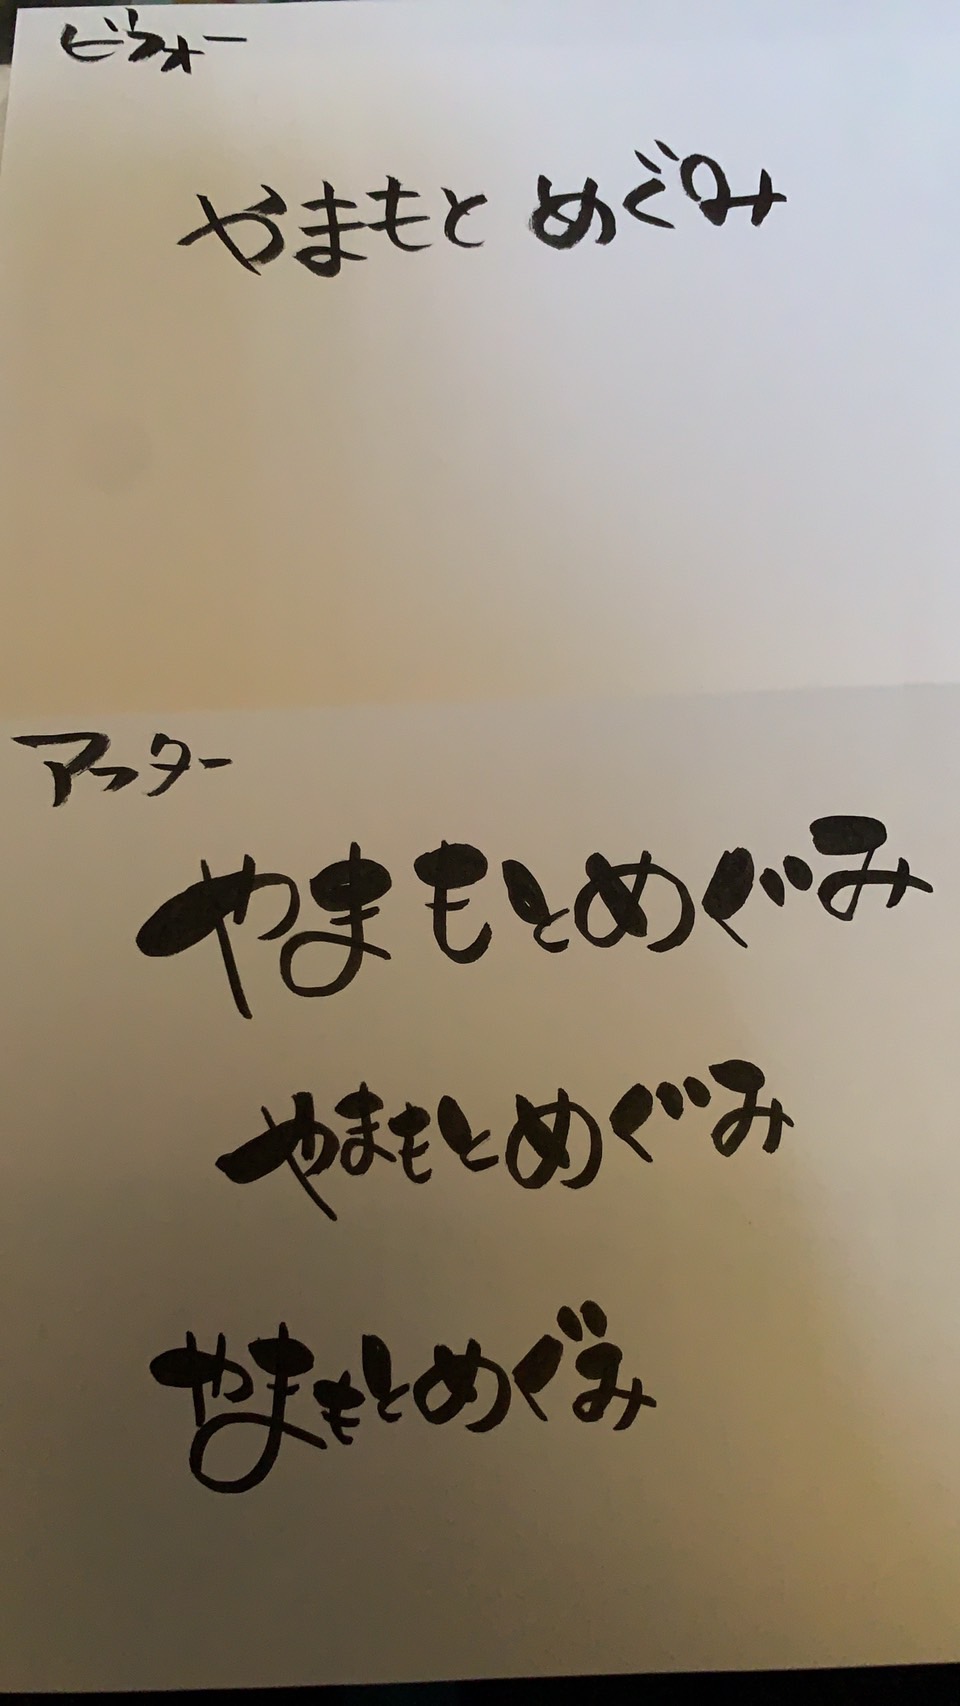 ビフォー
やまもと めぐみ
アフター
やまもとめぐみ
やまもとめぐみ
やまもとめぐみ